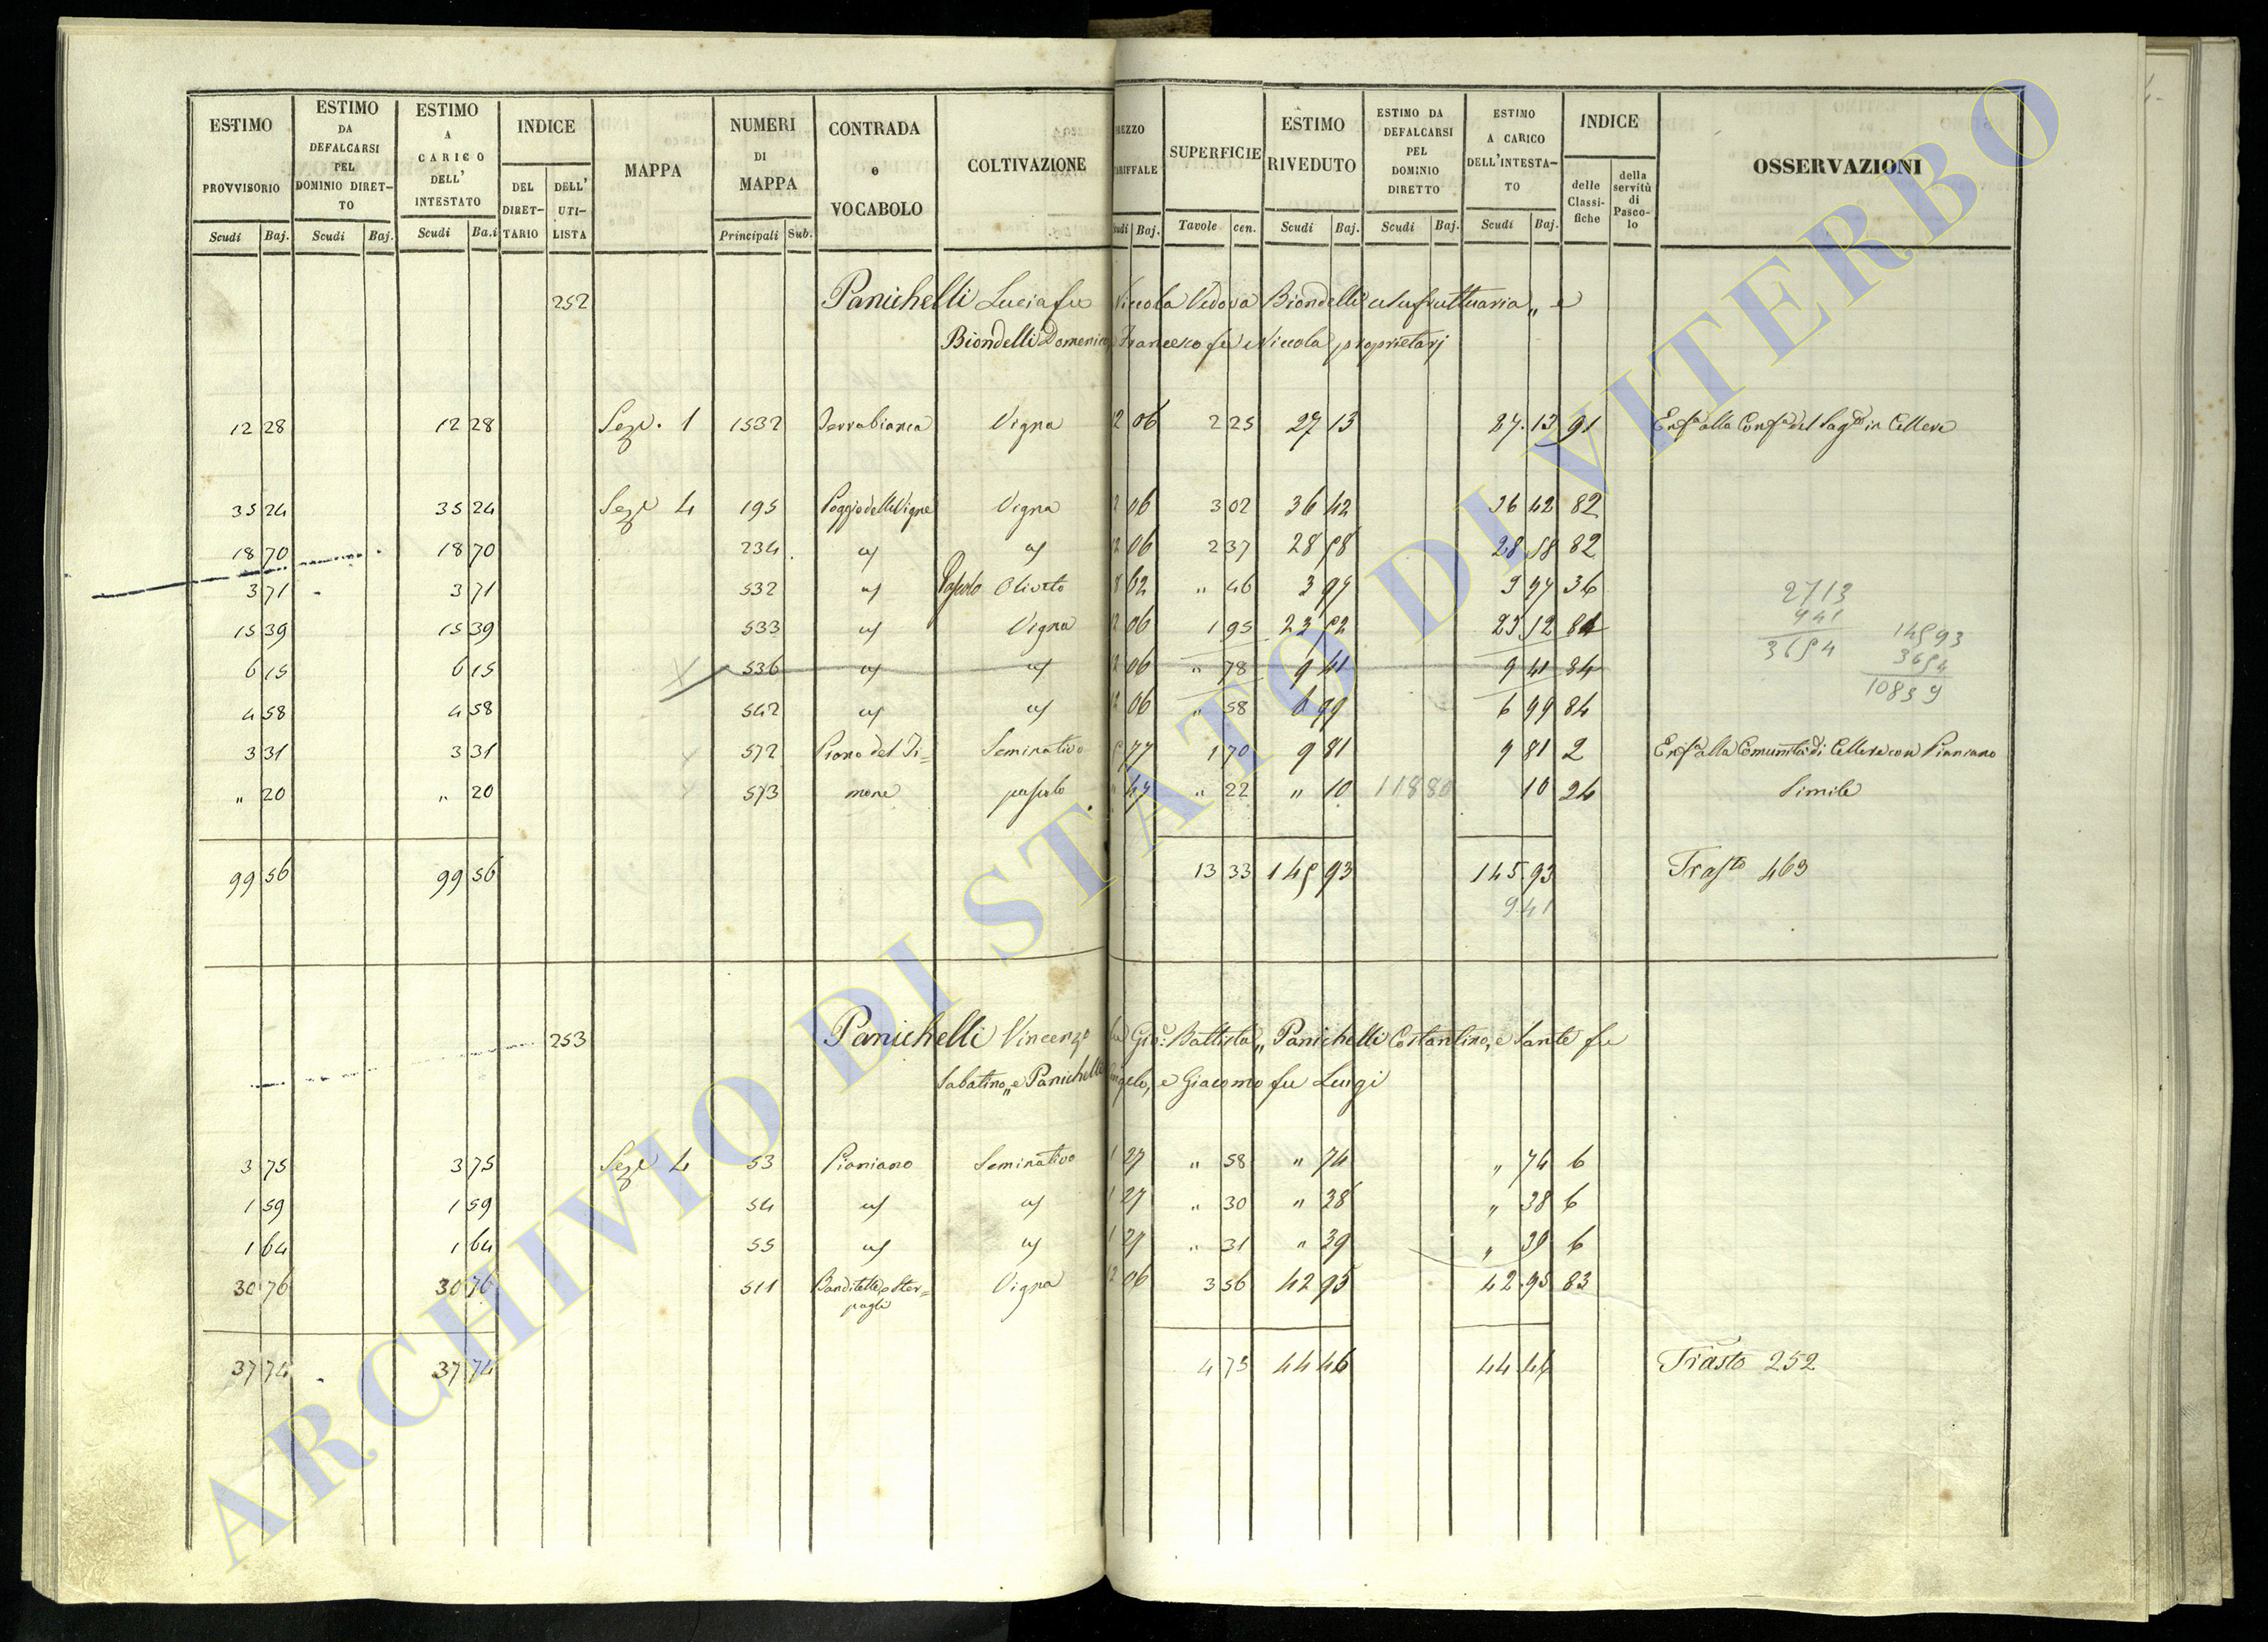 ESTIMO PROVVISORIO Scudi Baj. ESTIMO DA DEFALCARSI PEL DOMINIO DIRETTO Scudi Baj. ESTIMO A CARICO DELL' INTESTATO Scudi Ba.i INDICE DEL DIRET-TARIO DELL' UTI-LISTA MAPPA NUMERI DI MAPPA Principali Sub. CONTRADA e VOCABOLO COLTIVAZIONE REZZO RIFFALE udi Baj. SUPERFICIE Tavole cen. ESTIMO RIVEDUTO Scudi Baj. ESTIMO DA DEFALCARSI PEL DOMINIO DIRETTO Scudi Baj. ESTIMO A CARICO DELL'INTESTA-TO Scudi Baj. INDICE delle Classi-fiche della servitù di Pasco-lo OSSERVAZIONI
252 Panichelli Lucia fu Niccola Vedova Biondelli usufruttuaria „ e
Biondelli Domenico, Francesco fu Niccola proprietarj
12 28 12 28 Sez. 1 1532 Terrabianca Vigna 12 06 2 25 27 13 27.13 91 Enfa alla Confa del Sagto in Cellere
35 24 35 24 Seze 4 195 Poggio delle Vigne Vigna 12 06 3 02 36 42 36 42 82
18 70 18 70 234 uj uj 12 06 2 37 28 58 28 58 82
3 71 3 71 532 uj Pascolo Olivato 8 62 „ 46 3 97 3 97 36
15 39 15 39 533 uj Vigna 12 06 1 95 23 52 23 52 84
6 15 6 15 536 uj uj 12 06 „ 78 9 41 9 41 84
4 58 4 58 542 uj uj 12 06 „ 58 6 99 6 99 84
3 31 3 31 572 Piano del Ti= Seminativo 5 77 1 70 9 81 9 81 2 Enfa alla Comunità di Cellere con Pianiano
„ 20 „ 20 573 mone pascolo „ 47 „ 22 „ 10 118 80 10 24 Simile
2713
941
3654
14593
3654
10839
99 56 99 56 13 33 145 93 145.93 Trasto 463
9 41
253 Panichelli Vincenzo fu Gio: Battista „ Panichelli Costantino, e Sante fu
Sabatino „ e Panichelli Angelo, e Giacomo fu Luigi
3 75 3 75 Seze 4 53 Pianiano Seminativo 1 27 „ 58 „ 74 „ 74 6
1 59 1 59 54 uj uj 1 27 „ 30 „ 38 „ 38 6
1 64 1 64 55 uj uj 1 27 „ 31 „ 39 „ 39 6
30 76 30 76 511 Banditelle, e Ster= Vigna 12 06 3 56 42 95 42.95 83
pagli
37 74 37 74 4 75 44 46 44.46 Trasto 252
ARCHIVIO DI STATO DI VITERBO